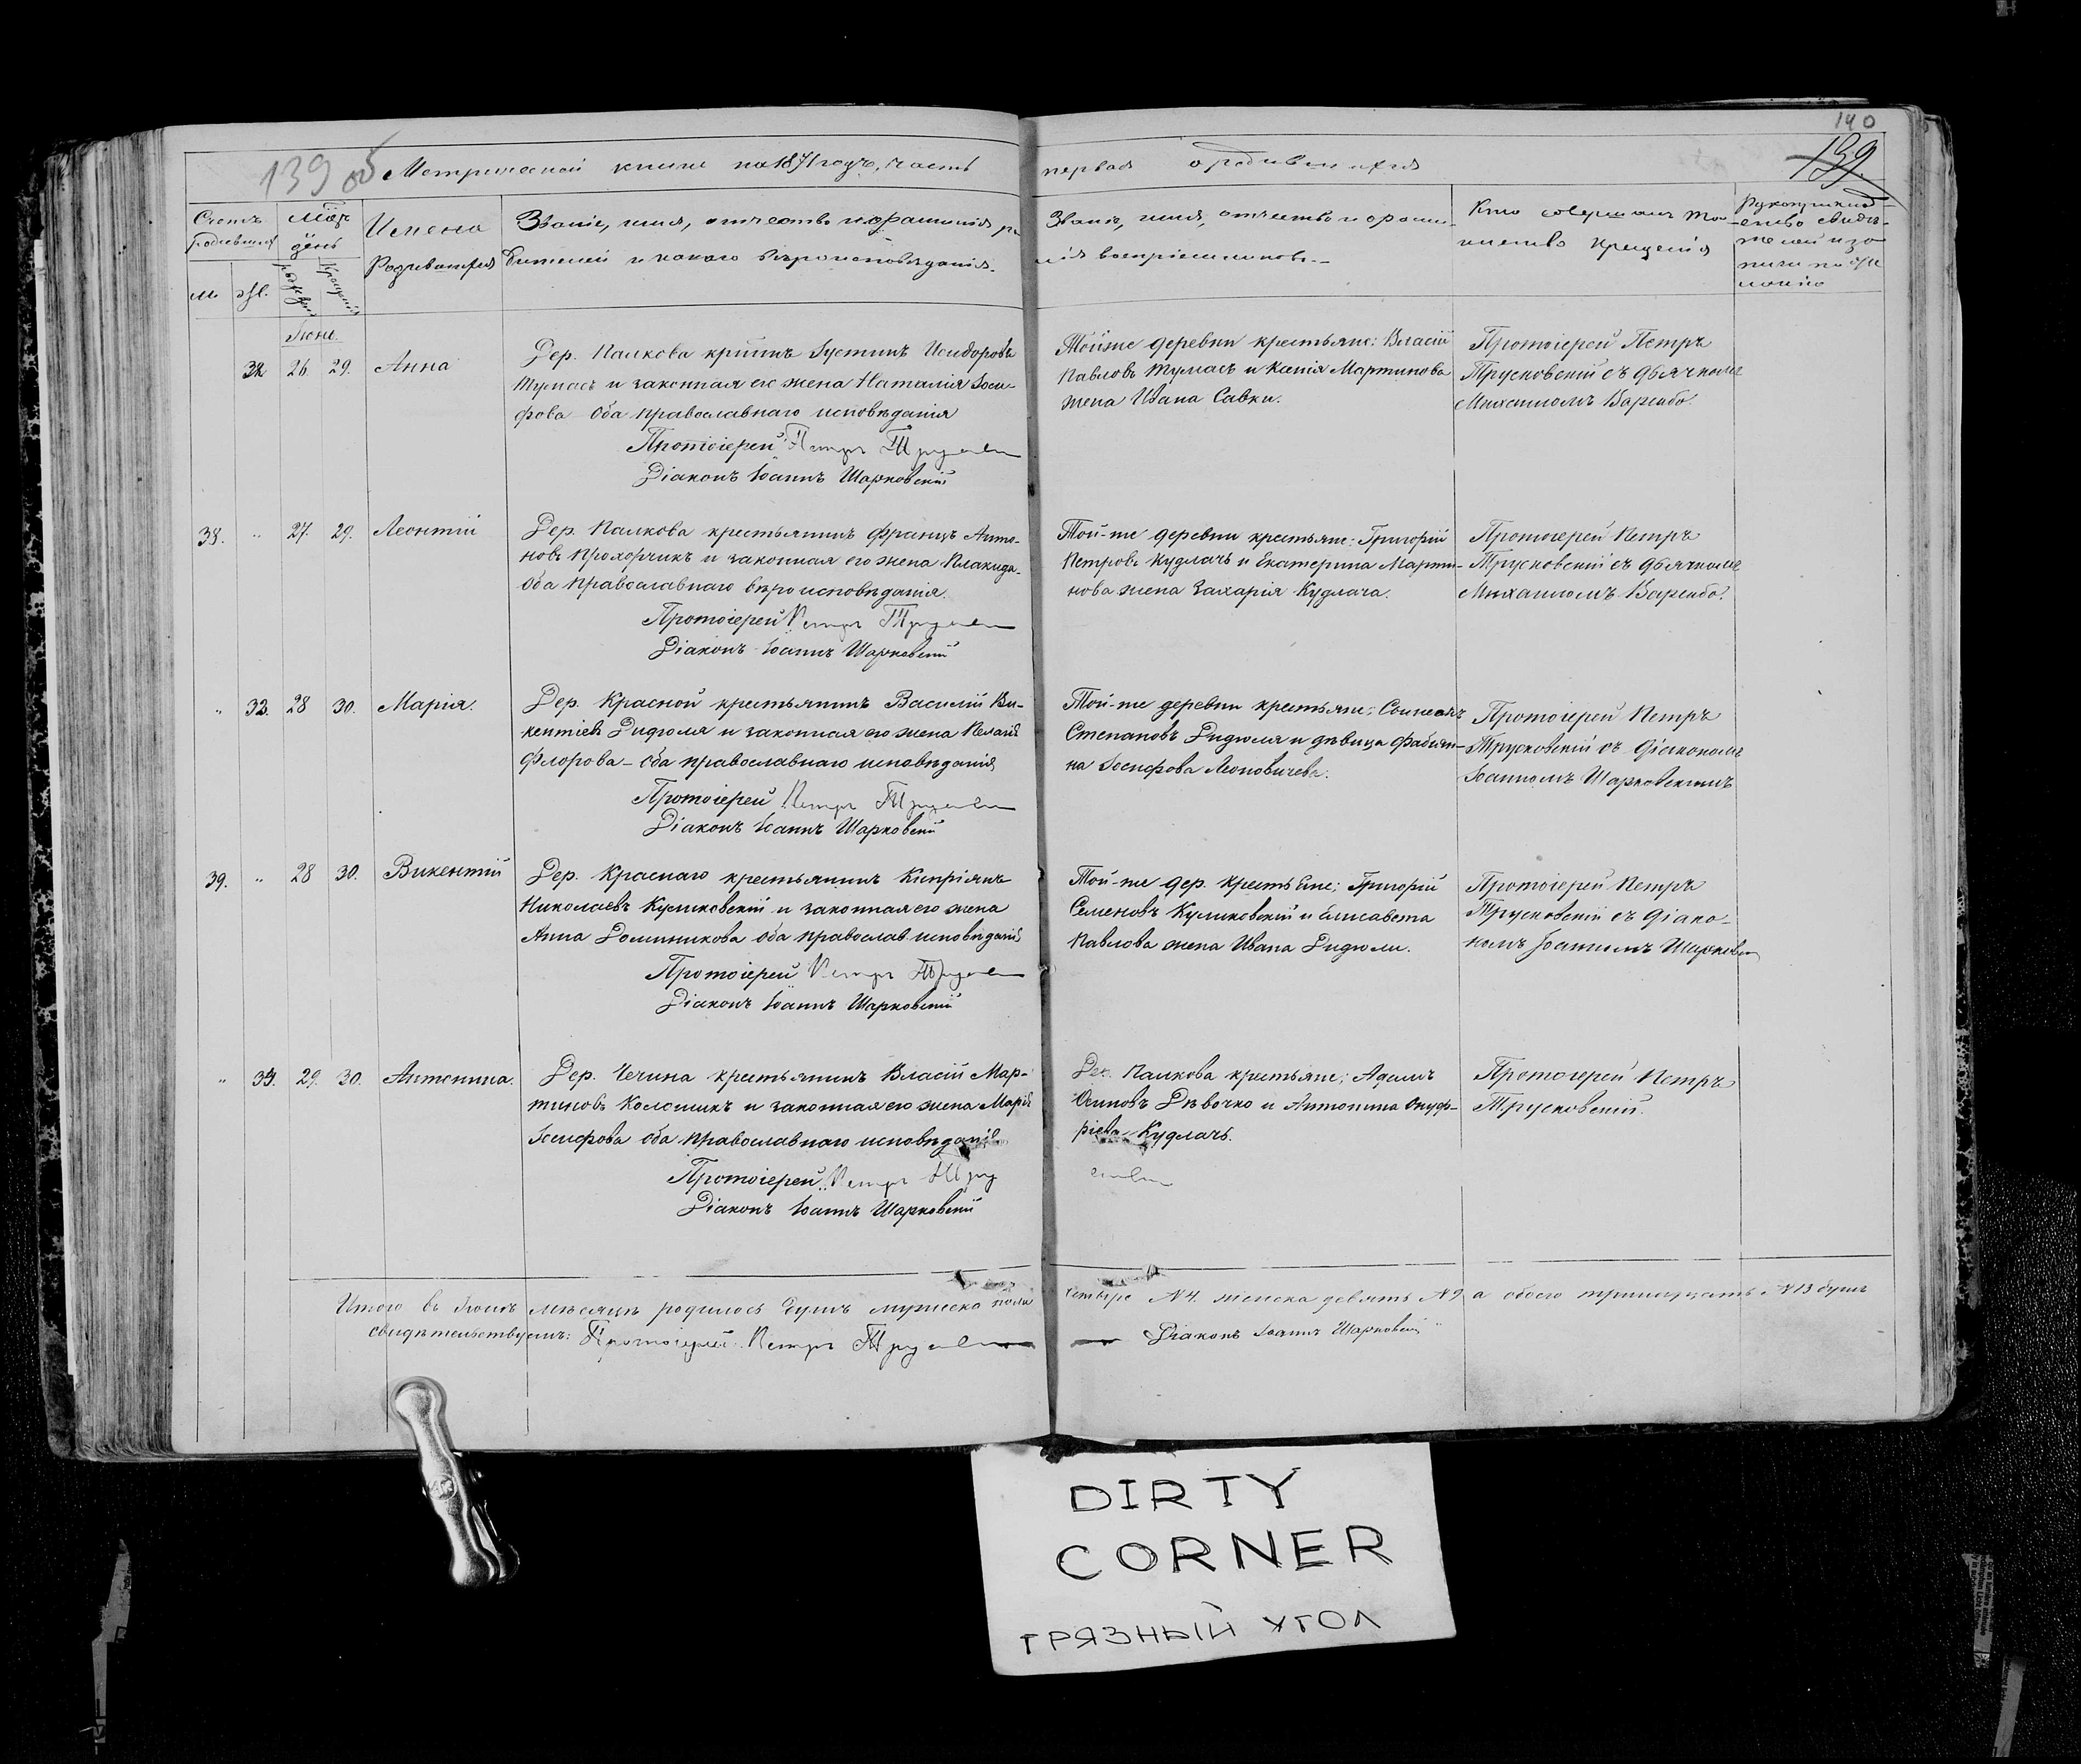 140
139 об Метрической книги на 1871 годъ, часть первая о родившихся
139.
Счетъ родившихся
Мѣсяц день
Имена Родившихся
Званіе, имя, отчество и фамилія ро-
дителей и какого вѣроисповѣданія.
Званіе, имя, отчество и фами-
лія воспріемниковъ.
Кто совершалъ та-
инство крещенія
Рукоприклад-
ство свидѣ-
телей
м. ж.
рожденія крещенія
Іюнь.
32 26 29. Анна
Дер. Палкова крѣинъ Іустинъ Исидоровъ
Тумасъ и законная его жена Наталія Іоси-
фова Оба православнаго исповѣданія
Протоіерей Петръ
Діаконъ Іоаннъ Шарковскій
Тойже деревни крестьяне: Власій
Павловъ Тумасъ и Мартинова
жена Ивана Савки.
Протоіерей Петръ
Трусковскій съ дьячкомъ
Михаиломъ
38. " 27. 29. Леонтій
Дер. Палкова крестьянинъ Францъ Анто-
новъ Прохорчикъ и законная его жена Плакида
Оба православнаго вѣроисповѣданія.
Протоіерей Петръ
Діаконъ Іоаннъ Шарковскій
Той-же деревни крестьяне: Григорій
Петровъ Кудлачъ и Екатерина Марти-
нова жена Захарія Кудлача.
Протоіерей Петръ
Трусковскій съ дьячкомъ
Михаиломъ
" 33. 28 30. Марія.
Дер. Красной крестьянинъ Василій Ви-
кентіевъ Дидюля и законная его жена Пелагія
Флорова - Оба православнаго исповѣданія
Протоіерей Петръ
Діаконъ Іоаннъ Шарковскій
Той-же деревни крестьяне:
Степановъ Дидюля и дѣвица Фабіян-
на Іосифова Леоновичева.
Протоіерей Петръ
Трусковскій съ діакономъ
Іоанномъ Шарковскимъ
39. " 28 30. Викентій
Дер. Краснаго крестьянинъ Кипріянъ
Николаевъ Куликовскій и законная его жена
Анна Доминикова оба православ. исповѣданія
Протоіерей Петръ
Діаконъ Іоаннъ Шарковскій
Той-же дер. крестьяне; Григорій
Семеновъ Куликовскій и Елисавета
Павлова жена Ивана Дидюли.
Протоіерей Петръ
Трусковскій съ діако-
номъ Іоанномъ
" 34. 29. 30. Антонина.
Дер. Чечина крестьянинъ Власій Мар-
тиновъ и законная его жена Марія
Іосифова оба православнаго исповѣданія
Протоіерей Петръ
Діаконъ Іоаннъ Шарковскій
Дер. Палкова крестьяне; Адамъ
Осиповъ Дѣвочко и Антонина Онуф-
ріева Кудлачъ.
Протоіерей Петръ
Трусковскій.
Итого въ Іюнѣ мѣсяцѣ родилось душъ мужеска пола четыре №4. женска девять №9 а обоего тринадцать №13 душъ
свидѣтельствуемъ: Протоіерей Петръ
Діаконъ Іоаннъ Шарковскій
DIRTY
CORNER
ГРЯЗНЫЙ УГОЛ